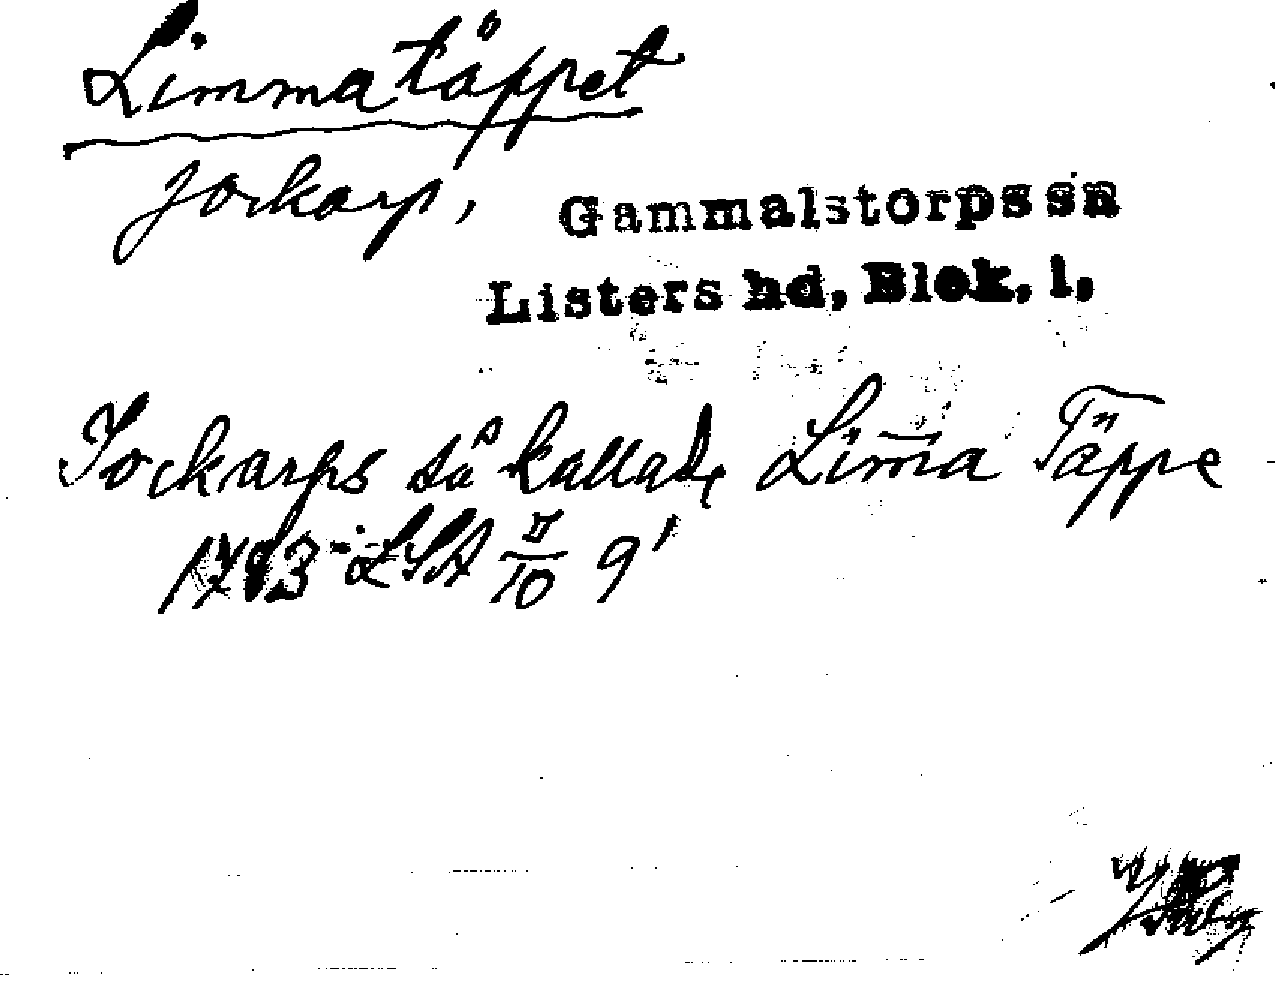 Limmatåppet
Jockarp,
Gammalstorps sn
Listers hd, Blek. l,
Jockarps så kallade Lim̄a Täppe
LSA 7/10 9'